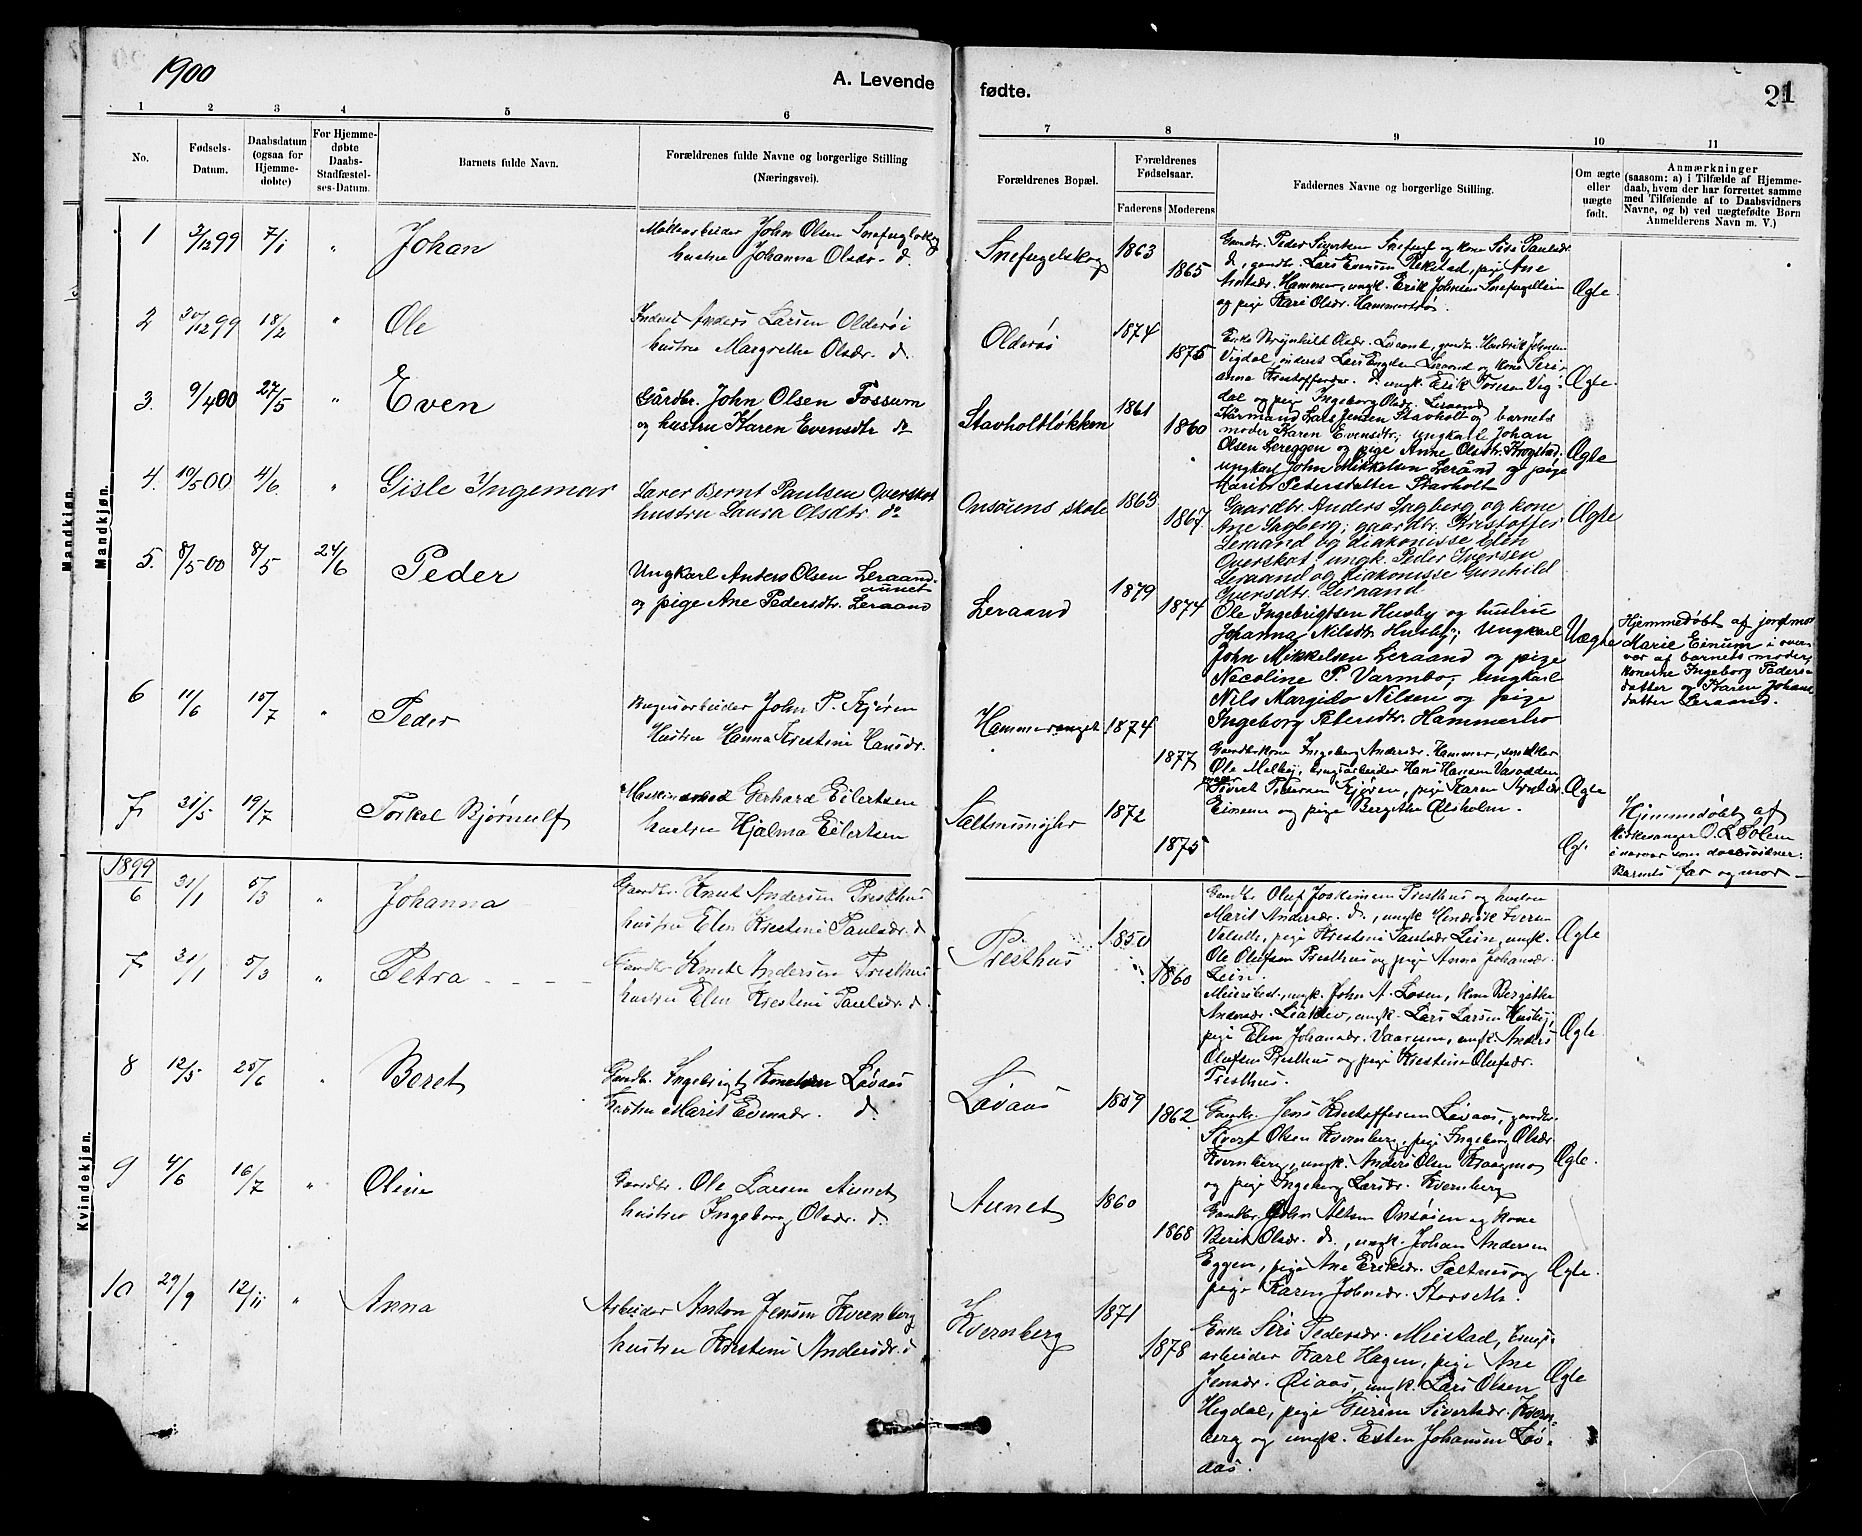 1900
A. Levende
fødte.
21
1 2 3 4 5 6 7 8 9 10 11
No.
Fødsels-Datum.
Daabsdatum (ogsaa for Hjemme-døbte)
For Hjemme-døbte Daabs-Stadfæstel-ses-Datum.
Barnets fulde Navn.
Forældrenes fulde Navne og borgerlige Stilling (Næringsvei).
Forældrenes Bopæl.
Forældrenes Fødselsaar.
Faderens Moderens
Faddernes Navne og borgerlige Stilling.
Om ægte eller uægte født.
Anmærkninger
(saasom: a) i Tilfælde af Hjemme-
daab, hvem der har forrettet samme
med Tilføiende af to Daabsvidners
Navne, og b) ved uægtefødte Børn
Anmelderens Navn m. V.)
Mandkjøn.
Mandkjøn.
1 3/12 99 7/1 " Johan
Møllearbeider John Olsen Snefuglskog
hustru Johanna Olsdr. d.
Snefugelskog 1863 1865
Gaardbr. Peder Sivertsen Snefugl og kone Siri Paulsdr.
d., gaardbr. Lars Evensen Rekstad, pige Ane
Hammer, ungk. Erik Johnsen
og pige Kari Olsdr. Hammer
Ægte.
2 30/12 99 18/2 " Ole
Inderst Anders Larsen Olderøi
hustru Margrethe Olsdr. d.
Olderøi 1874 1875
Enke Brynhild Olsdr. Leraand, gaardbr. Hendrik Johnsen
Vigdal, inderst Lars Leraand og kone Seri-
anna Kristoffersdr. d. ungk. Erik Vig-
dal og pige Ingeborg Olsdr. Leraand
Ægte.
3. 9/4 00 27/5 " Even
Gårdbr. John Olsen Fossum
og hustru Karen Evensdtr do
Stavholtløkken 1861 1860
Kårmand Lars Jensen Stavholt og barnets
moder Karen Evensdtr; ungkarl Johan
Olsen Lereggen og pige Anne Olsdtr. Krogstad.
ungkarl John Mikkelsen Lerånd og pige
Marit Petersdatter Stavholt
Ægte
4. 10/5 00 4/6. " Gisle Ingemar
Lærer Bernt Paulsen Overskot
hustru Laura Olsdtr do
Onsøiens skole 1863 1867
Gaardbr. Anders Sagberg og kone
Ane Sagberg; gaardbr. Kristoffer
Leraand og diakonisse Elen
Overskot, ungk. Peder Iversen
Leraand og diakonisse Gunhild
Iversdtr. Leraand
Ægte
5. 8/5 00 8/5 24/6 Peder
Ungkarl Anders Olsen Leraand-
aunet
og pige Ane Pedersdtr. Leraand
Leraand 1879 1874
Ole Ingebrigtsen Husby og hustru
Johanna Nilsdtr Husby; Ungkarl
John Mikkelsen Leraand og pige
Nicoline P. Varmbo, ungkarl
Nils Margido Nilsen og pige
Ingeborg Petersdtr. Hammerbo
Uægte
Hjemmedøbt af jordmor
Marie Einum i over-
vær af barnets moder,
konerne Ingeborg Peders-
datter og Karen Johans
datter Leraand.
6 11/6 15/7 " Peder
Brugsarbeider John P. Kjøren
Hustru Hanna Kristine Hansdr.
Hammervanget 1874 1877
Gaardbrkone Ingeborg Andersdr. Hammer, snedker
Ole Melby, brugsarbeider Hans Hansen
Sivert Petersen Kjøren, pige Karen
Einum og pige Bergitte Ølsholm.
Ægte
7 31/5 19/7 Torkel Bjørnulf
Maskin Gerhard Eilertsen
hustru Hjalma Eilertsen
1872 1875
Æg.
Hjemmedøbt af
kirkesanger O. L. Solem
i nærvær som daabsvidner:
Barnets far og mor
Kvindekjøn.
1899
6 31/1 5/3 " Johanna
Gaardbr. Knut Andersen Presthus
hustru Elen Kristine Paulsdr. d
Presthus 1850 1860
Gaardbr Oluf Joakimsen Presthus og hustru
Marit Andersdr. d., ungk. Hendrik Iversen
pige Kristine Paulsdr. Lein, ungk.
Ole Olufsen Presthus og pige Anna Johansdr.
Lein.
Ægte
7 31/1 5/3 " Petra
Gaardbr Knut Andersen Presthus
hustru Elen Kristine Paulsdr. d.
ungk. John A. Losen, kone Bergithe
Andersdr. ungk. Lars Larsen Husby,
pige Elen Johansdr. Vaarum, ungk. Anders
Olufsen Presthus og pige Kristine Olufsdr.
Presthus.
Ægte
8 12/5 25/6 " Beret
Gaardbr. Ingebrigt Knutsen Løvaas
hustru Marit Evensdr. d.
Løvaas 1859 1862
Gaardbr. Jens Kristoffersen Løvaas, gaardbr.
Sivert Olsen Kvernberg, pige Ingeborg Olsdr
Kvernberg, ungk. Anders Olsen Kraagmo
og pige Ingeborg Larsdr. Kvernberg
Ægte.
9 4/6 16/7 " Oline
Gaardbr. Ole Larsen Aunet
hustru Ingeborg Olsdr. d.
Aunet 1860 1868
Gaardbr. John Olsen Onsøien og kone
Berit Olsdr. d., ungk. Johan Andersen
Eggen, pige Ane Eriksdr. Saltnes og
pige Karen Johnsdr. Storseth.
Ægte.
10 29/9 12/11 " Anna
Arbeider Anton Jensen Kvernberg
hustru Kristine Andersdr. d
Kvernberg 1871 1878
Enke Siri Pedersdr. Meistad, brugs-
arbeider Karl Hagen, pige Ane
Jensdr. ungk. Lars Olsen
Hegdal, pige Gurine Sivertsdr. Kvern-
berg og ungk. Esten Johansen Løv-
aas.
Ægte